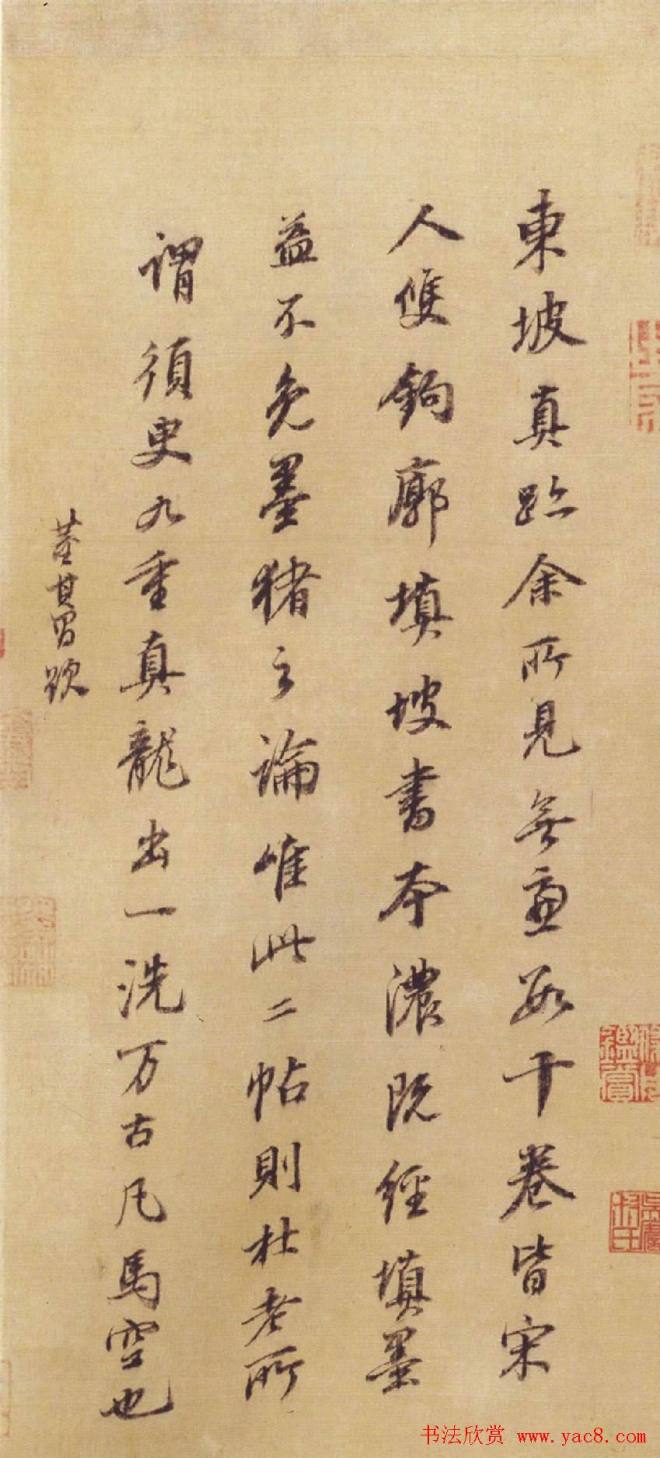 東坡真跡余所見無慮數十卷皆宋
人雙鉤廓填坡書本濃既經填墨
益不免墨猪之論唯此二帖則杜老所
謂須臾九重真龍出一洗万古凡馬空也
董其昌跋
书法欣赏 www.yac8.com